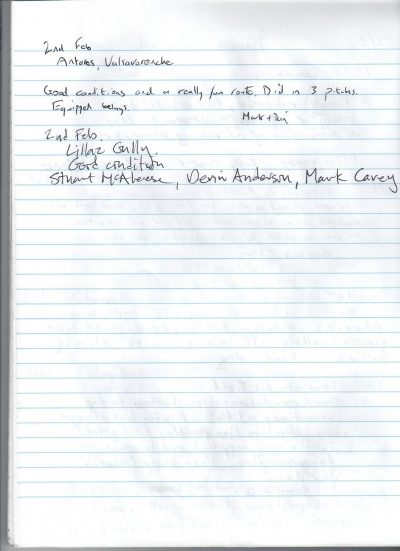 2nd Feb
Antares, Valsavarenche
Good conditions and a really fun route. Did in 3 pitches.
Equipped belays.
Mark +
2nd Feb.
Lillaz Gully.
Good condition
Stuart McAleese, Devin Anderson, Mark Carey